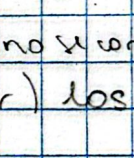 no se con
c) los